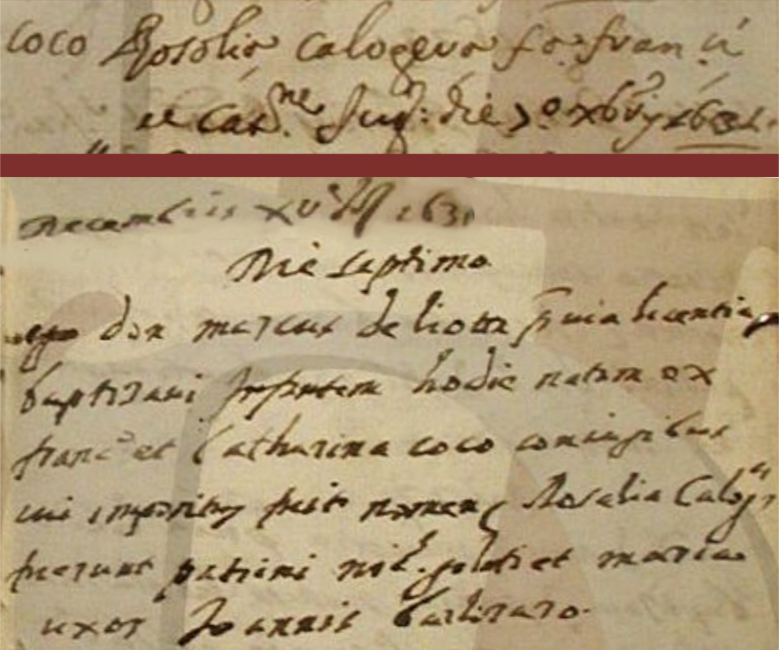 coco Rosolia calogera fa: fran ci
et Cat.ne Jug: die 7º xbris 1631
Decembris XV Ind 1631
Die septimo
ego don marcus de liotta previa licentia
baptizavi infantem hodie natam ex
franc et Catharina coco coniugibus
cui impositum fuit nomen Rosalia Calog
fuerunt patrini et maria
uxor Joannis barbiraro